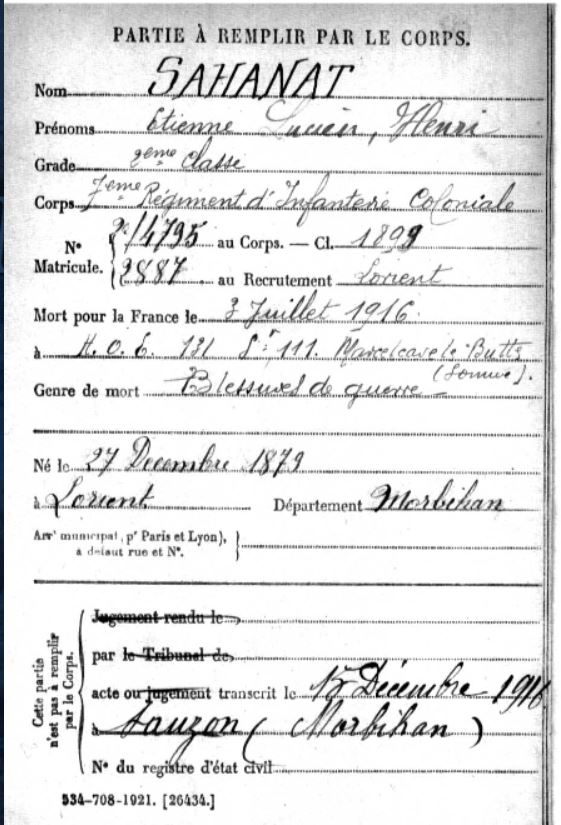 PARTIE À REMPLIR PAR LE CORPS.
Nom SAHANAT
Prénoms Etienne Lucien, Henri
Grade 2eme Classe
Corps 7eme Régiment d'Infanterie Coloniale
N° 14795 au Corps. — Cl. 1899
Matricule. 2887 au Recrutement Lorient
Mort pour la France le 3 Juillet 1916
à H. O. E. 13 St 111. Marcelcave le Buttes
(Somme).
Genre de mort Blessures de guerre
Né le 27 Decembre 1879
à Lorient Département Morbihan
Arrt municipal (pr Paris et Lyon),
à défaut rue et N°.
Cette partie
n'est pas à remplir
par le Corps.
Jugement rendu le
par le Tribunal de
acte ou jugement transcrit le 15 Décembre 1916
à Sauzon (Morbihan)
N° du registre d'état civil
534-708-1921. [26434.]